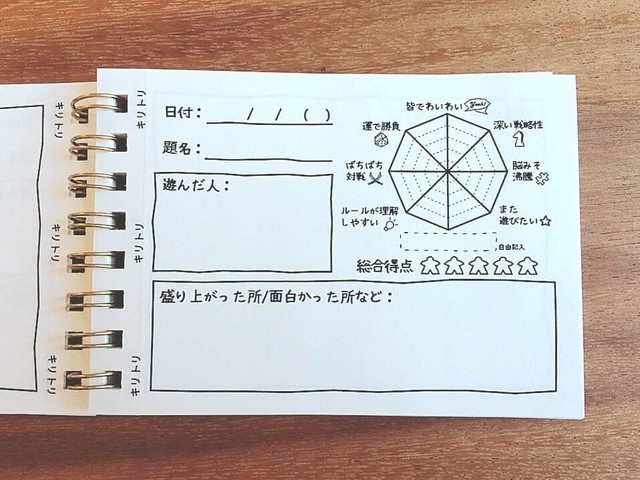 キリトリ
キリトリ
キリトリ
キリトリ
キリトリ
キリトリ
日付： / / ( )
題名：
遊んだ人：
皆でわいわい
Yeah!
深い戦略性
脳みそ
沸騰
また
遊びたい
自由記入
ルールが理解
しやすい
ばちばち
対戦
運で勝負
総合得点
盛り上がった所/面白かった所など：